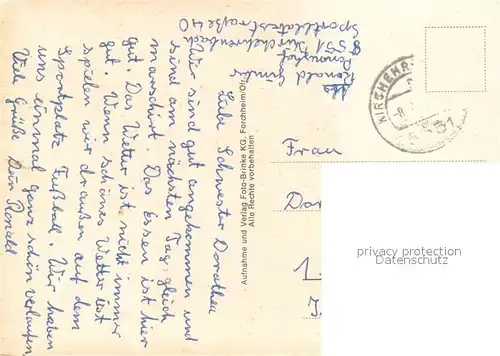 Ronald Gundler
Ponnyhof
8551 Kirchehrenbach
Sportplatzstraße 40
Liebe Schwester Dorothea
Wir sind gut angekommen und
sind am nächsten Tag gleich
marschirt. Das Essen ist hier
gut. Das Wetter ist nicht immer
gut. Wenn schönes Wetter ist
spielen wir draußen auf dem
Sportplatz Fußball. Wir haben
uns einmal ganz schön verlaufen.
Viele Grüße Dein Ronald
Aufnahme und Verlag Foto-Brinke KG, Forchheim/Ofr.
Alle Rechte vorbehalten
KIRCHEHR
8551
Frau
Dor
1.
privacy protection
Datenschutz